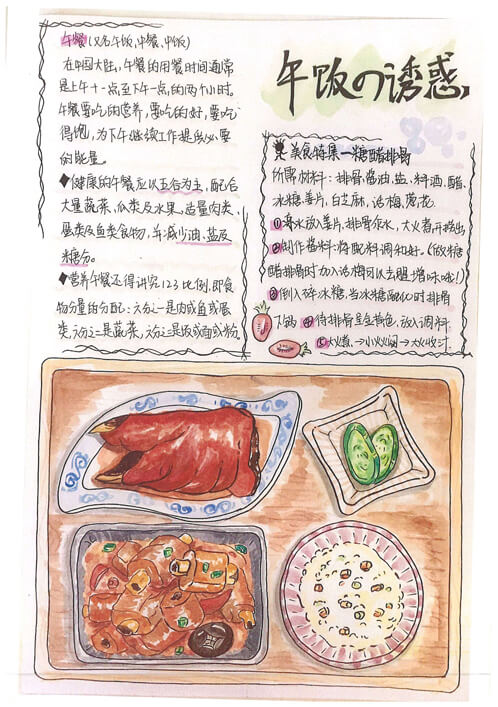 午饭の诱惑
午餐(又名午饭,中餐,中饭)
在中国大陆,午餐的用餐时间通常
是上午十一点至下午一点的两个小时,
午餐要吃的营养,要吃的好,要吃
得饱,为下午继续工作提供必要
的能量。
◆健康的午餐应以五谷为主,配合
大量蔬菜、瓜类及水果,适量肉类、
蛋类及鱼类食物,并减少油、盐及
糖分。
◆营养午餐还得讲究1:2:3比例,即食
物分量的分配:六分之一是肉或鱼或蛋
类,六分之二是蔬菜,六分之三是饭或面或粉
美食特集—糖醋排骨
所需材料:排骨、酱油、盐、料酒、醋、
冰糖、姜片、白芝麻、话梅、葱花.
①凉水放入姜片,排骨焯水,大火煮开捞出
②制作酱料:将配料调和好.(做糖
醋排骨时加入话梅可以去腥增味哦!)
③倒入碎冰糖,当冰糖融化时排骨
入锅 ④待排骨呈金黄色,放入调料.
⑤大火煮.→小火焖→大火收汁.